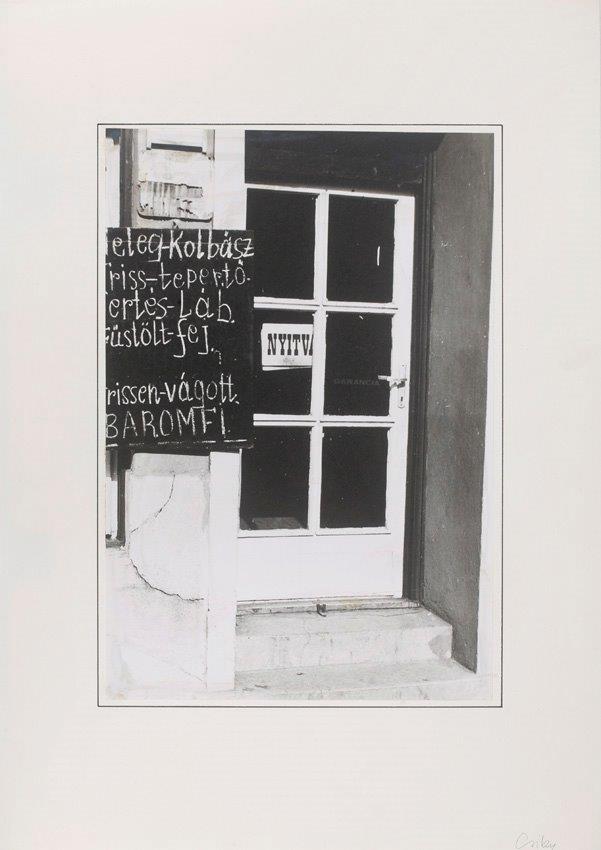 eleg-Kolbász
riss-tepertő.
ertés-Láb.
üstölt-fej.
rissen-vágott.
BAROMFI.
NYITVA
GARANCIA